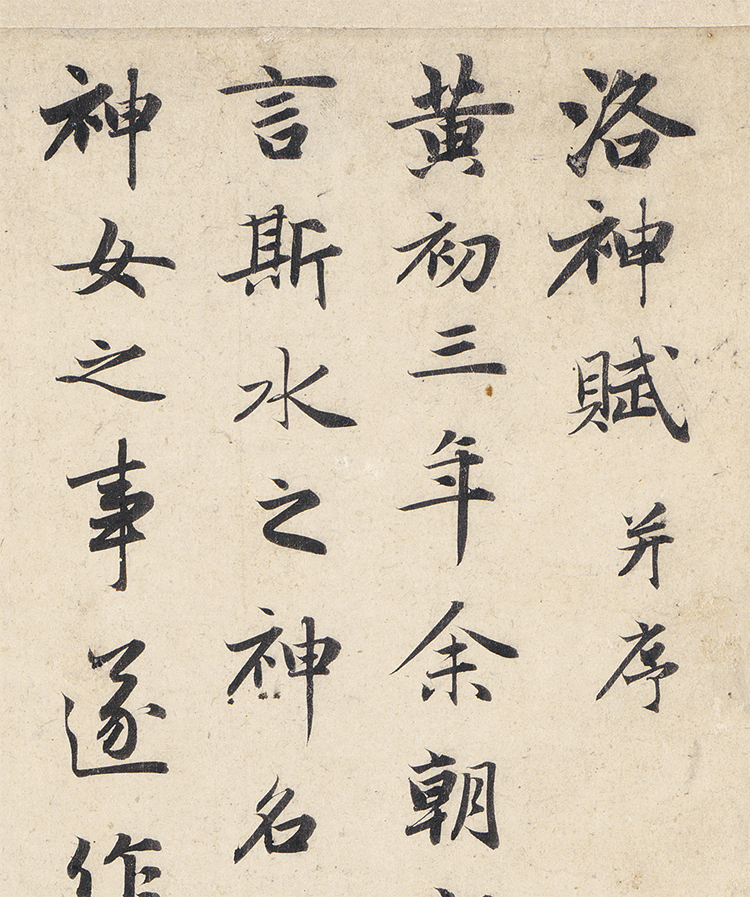 洛神賦并序
黃初三年余朝
言斯水之神名
神女之事遂作